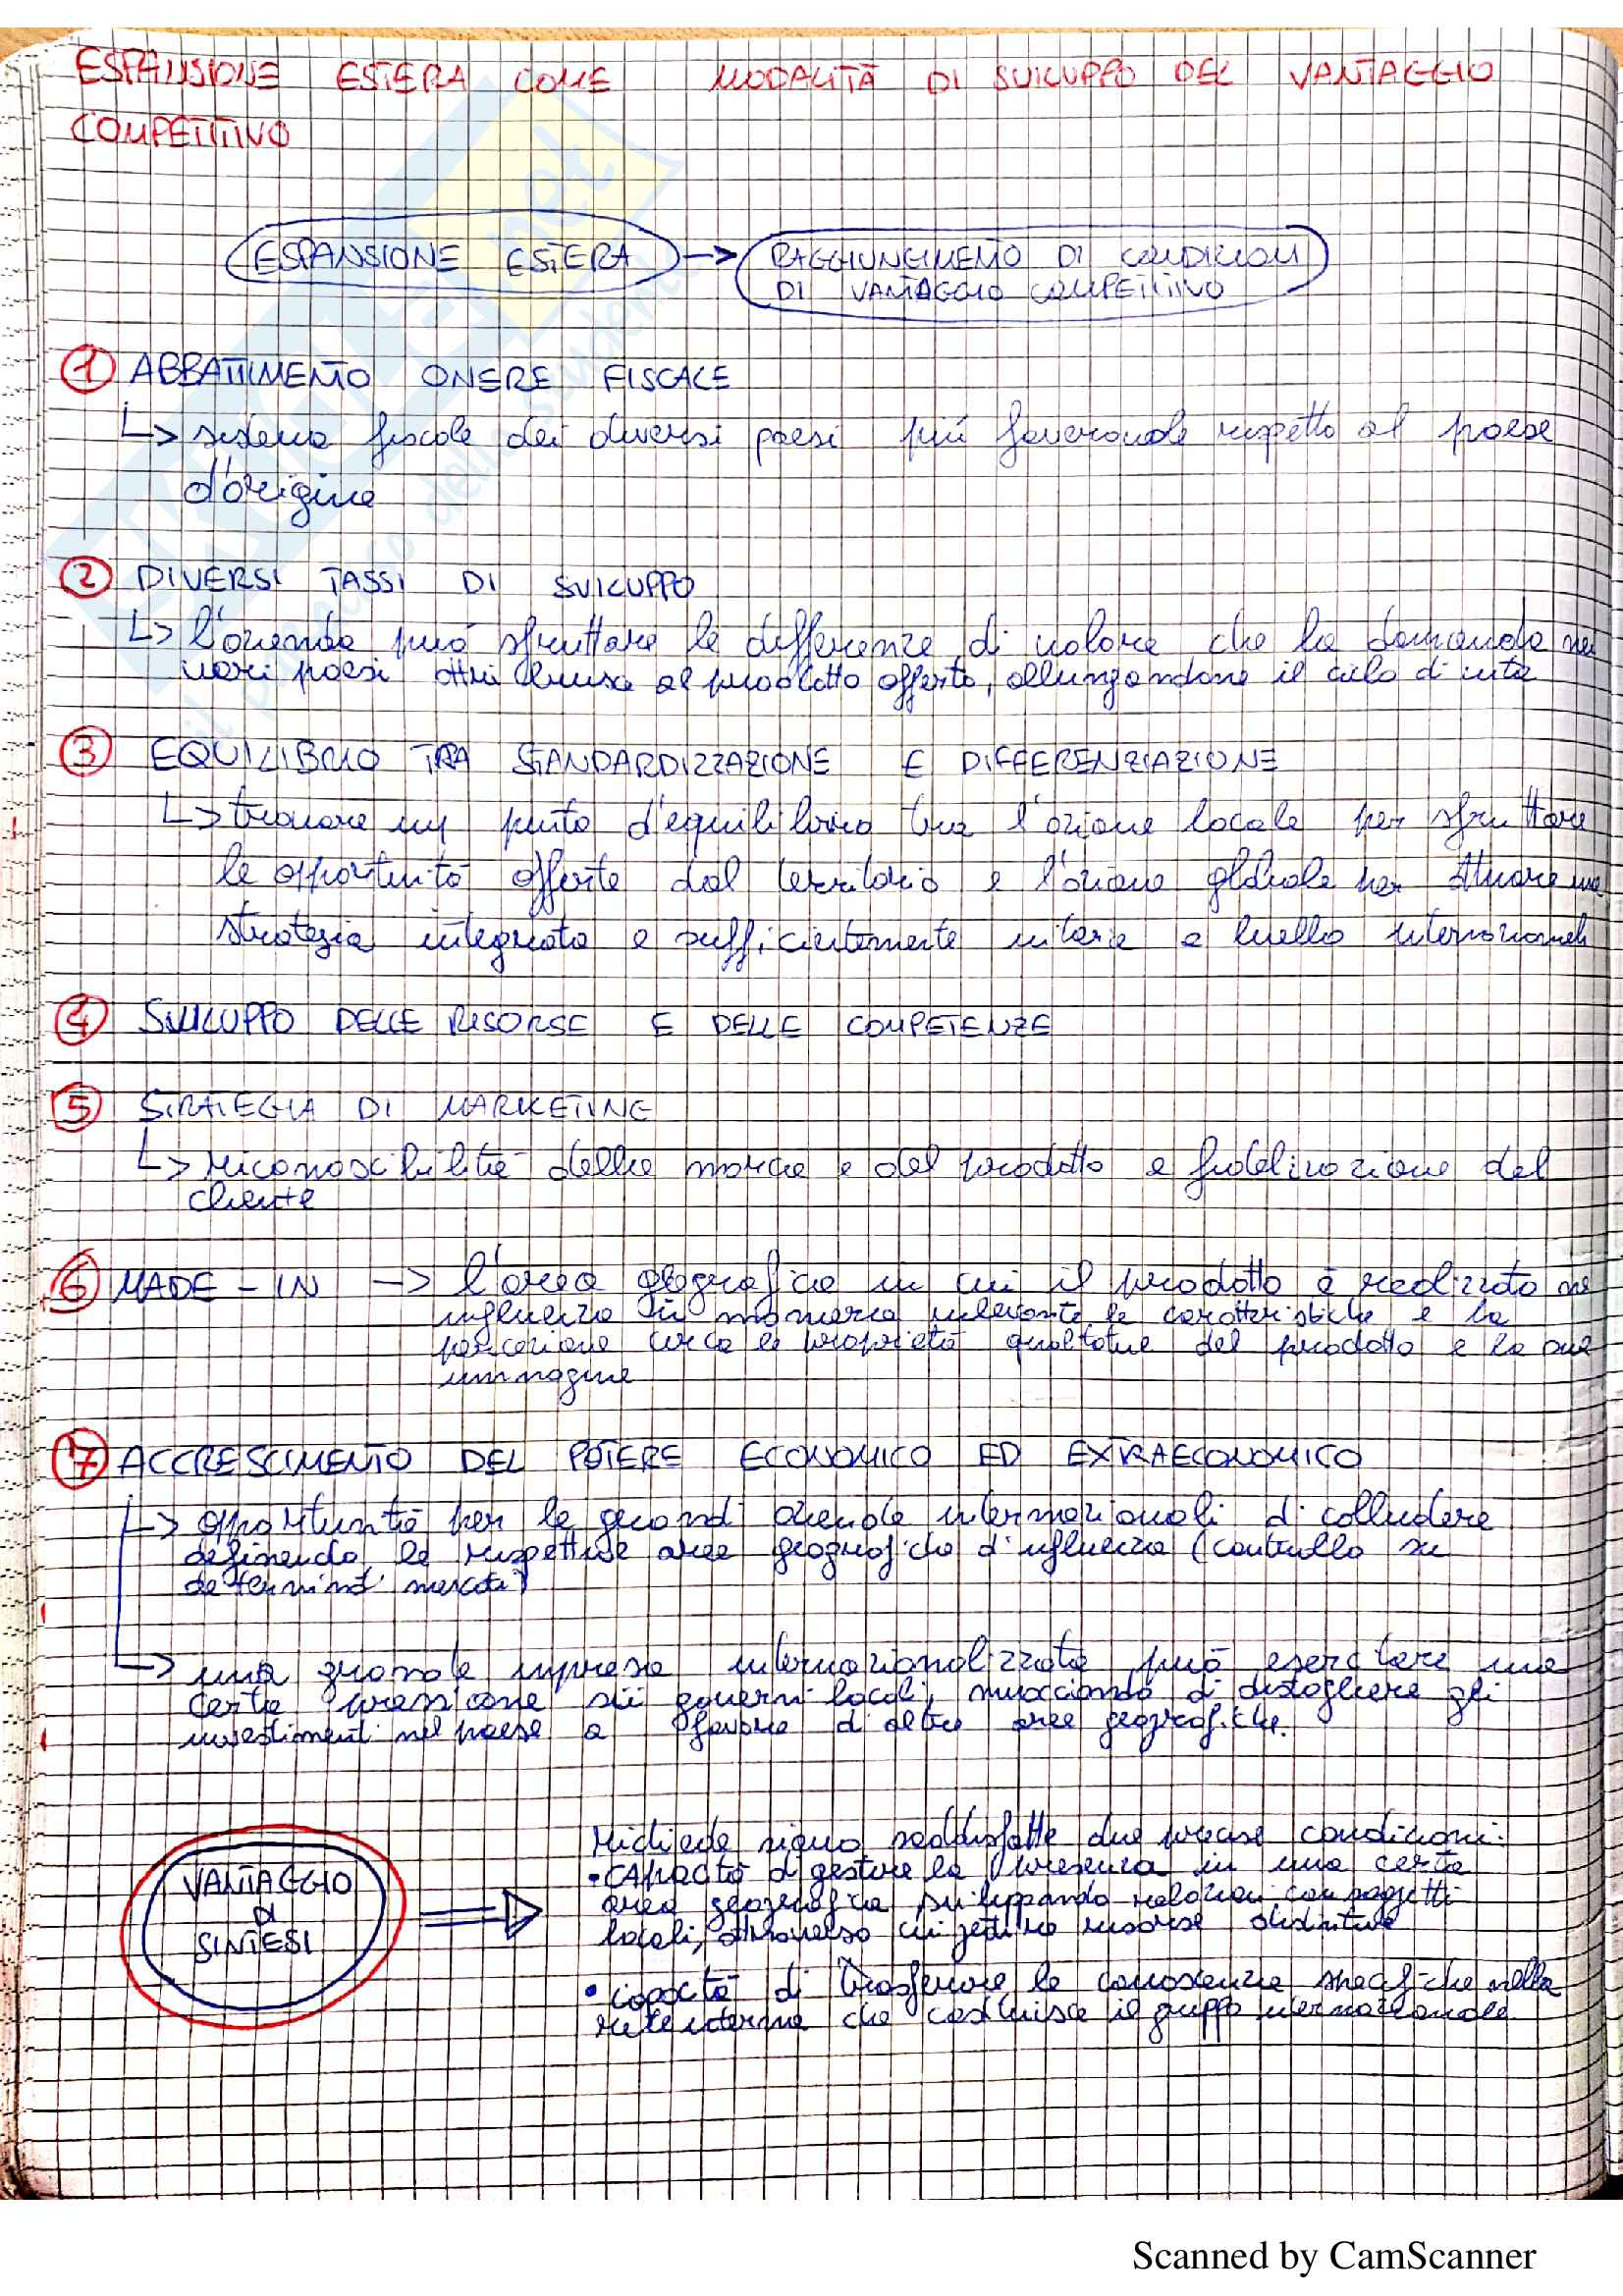 ESPANSIONE ESTERA COME MODALITÀ DI SVILUPPO DEL VANTAGGIO
COMPETITIVO
ESPANSIONE ESTERA → RAGGIUNGIMENTO DI CONDIZIONI
DI VANTAGGIO COMPETITIVO
1 ABBATTIMENTO ONERE FISCALE
↳ sistema fiscale dei diversi paesi più favorevole rispetto al paese
d'origine
2 DIVERSI TASSI DI SVILUPPO
↳ l'azienda può sfruttare le differenze di valore che la domanda nei
vari paesi attribuisce al prodotto offerto, allungandone il ciclo di vita
3 EQUILIBRIO TRA STANDARDIZZAZIONE E DIFFERENZIAZIONE
↳ trovare un punto d'equilibrio tra l'azione locale per sfruttare
le opportunità offerte dal territorio e l'azione globale per attuare una
strategia integrata e sufficientemente unitaria a livello internazionale
4 SVILUPPO DELLE RISORSE E DELLE COMPETENZE
5 STRATEGIA DI MARKETING
↳ riconoscibilità della marca e del prodotto e fidelizzazione del
cliente
6 MADE-IN → l'area geografica in cui il prodotto è realizzato ne
influenza in maniera rilevante le caratteristiche e la
percezione circa le proprietà qualitative del prodotto e la sua
immagine
7 ACCRESCIMENTO DEL POTERE ECONOMICO ED EXTRAECONOMICO
↳ opportunità per le grandi aziende internazionali di colludere
definendo le rispettive aree geografiche d'influenza (controllo su
determinati mercati)
↳ una grande impresa internazionalizzata può esercitare una
certa pressione sui governi locali, minacciando di distogliere gli
investimenti nel paese a favore di altre aree geografiche.
VANTAGGIO
DI
SINTESI
⇒ richiede siano soddisfatte due precise condizioni:
• capacità di gestire la presenza in una certa
area geografica sviluppando relazioni con soggetti
locali, attraverso cui gestire risorse distintive
• capacità di trasferire le conoscenze specifiche nella
rete interna che costituisce il gruppo internazionale
Scanned by CamScanner